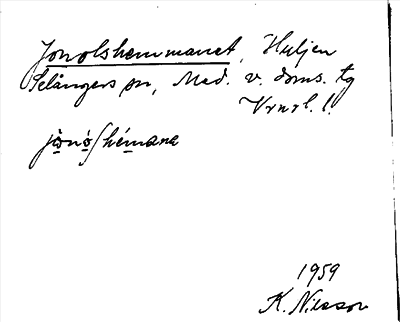 Jonolshemmanet, Huljen
Selångers sn, Med. v. doms. tg
Vrnrl. l.
jònós/hémana
1959
K. Nilsson